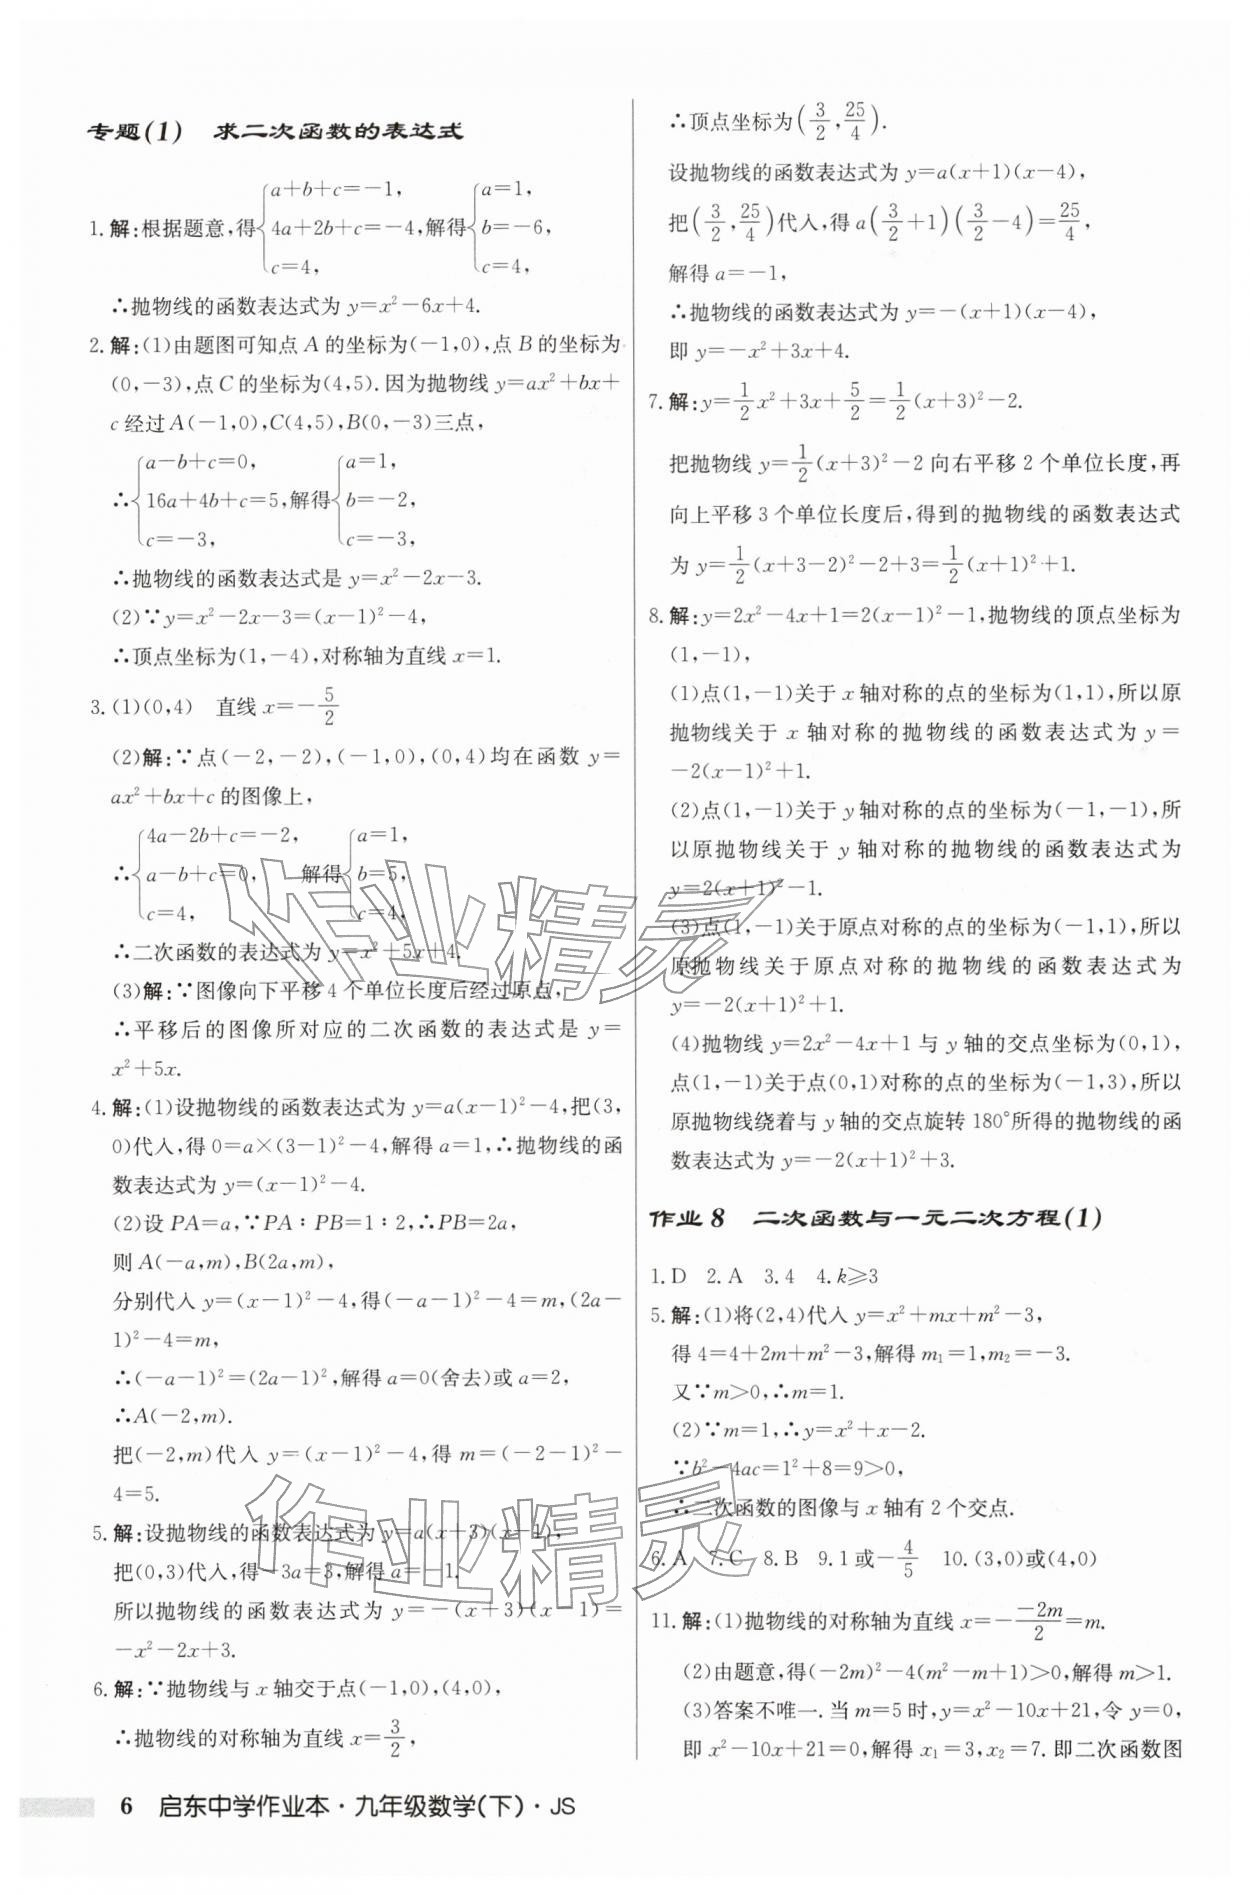 专题(1) 求二次函数的表达式
1. 解:根据题意,得{a+b+c=-1, 4a+2b+c=-4, c=4, 解得{a=1, b=-6, c=4,
∴抛物线的函数表达式为 y=x²-6x+4.
2. 解:(1)由题图可知点 A 的坐标为(-1,0),点 B 的坐标为
(0,-3),点 C 的坐标为(4,5).因为抛物线 y=ax²+bx+
c 经过 A(-1,0),C(4,5),B(0,-3)三点,
∴{a-b+c=0, 16a+4b+c=5, c=-3, 解得{a=1, b=-2, c=-3,
∴抛物线的函数表达式是 y=x²-2x-3.
(2)∵y=x²-2x-3=(x-1)²-4,
∴顶点坐标为(1,-4),对称轴为直线 x=1.
3. (1)(0,4) 直线 x=-5/2
(2)解:∵点(-2,-2),(-1,0),(0,4)均在函数 y=
ax²+bx+c 的图像上,
∴{4a-2b+c=-2, a-b+c=0, c=4, 解得{a=1, b=5, c=4,
∴二次函数的表达式为 y=x²+5x+4.
(3)解:∵图像向下平移 4 个单位长度后经过原点,
∴平移后的图像所对应的二次函数的表达式是 y=
x²+5x.
4. 解:(1)设抛物线的函数表达式为 y=a(x-1)²-4,把(3,
0)代入,得 0=a×(3-1)²-4,解得 a=1,∴抛物线的函
数表达式为 y=(x-1)²-4.
(2)设 PA=a,∵PA∶PB=1∶2,∴PB=2a,
则 A(-a,m),B(2a,m),
分别代入 y=(x-1)²-4,得(-a-1)²-4=m,(2a-
1)²-4=m,
∴(-a-1)²=(2a-1)²,解得 a=0(舍去)或 a=2,
∴A(-2,m).
把(-2,m)代入 y=(x-1)²-4,得 m=(-2-1)²-
4=5.
5. 解:设抛物线的函数表达式为 y=a(x+3)(x-1),
把(0,3)代入,得-3a=3,解得 a=-1.
所以抛物线的函数表达式为 y=-(x+3)(x-1)=
-x²-2x+3.
6. 解:∵抛物线与 x 轴交于点(-1,0),(4,0),
∴抛物线的对称轴为直线 x=3/2,
∴顶点坐标为(3/2,25/4).
设抛物线的函数表达式为 y=a(x+1)(x-4),
把(3/2,25/4)代入,得 a(3/2+1)(3/2-4)=25/4,
解得 a=-1,
∴抛物线的函数表达式为 y=-(x+1)(x-4),
即 y=-x²+3x+4.
7. 解:y=1/2x²+3x+5/2=1/2(x+3)²-2.
把抛物线 y=1/2(x+3)²-2 向右平移 2 个单位长度,再
向上平移 3 个单位长度后,得到的抛物线的函数表达式
为 y=1/2(x+3-2)²-2+3=1/2(x+1)²+1.
8. 解:y=2x²-4x+1=2(x-1)²-1,抛物线的顶点坐标为
(1,-1),
(1)点(1,-1)关于 x 轴对称的点的坐标为(1,1),所以原
抛物线关于 x 轴对称的抛物线的函数表达式为 y=
-2(x-1)²+1.
(2)点(1,-1)关于 y 轴对称的点的坐标为(-1,-1),所
以原抛物线关于 y 轴对称的抛物线的函数表达式为
y=2(x+1)²-1.
(3)点(1,-1)关于原点对称的点的坐标为(-1,1),所以
原抛物线关于原点对称的抛物线的函数表达式为
y=-2(x+1)²+1.
(4)抛物线 y=2x²-4x+1 与 y 轴的交点坐标为(0,1),
点(1,-1)关于点(0,1)对称的点的坐标为(-1,3),所以
原抛物线绕着与 y 轴的交点旋转 180°所得的抛物线的函
数表达式为 y=-2(x+1)²+3.
作业 8 二次函数与一元二次方程(1)
1. D 2. A 3. 4 4. k≥3
5. 解:(1)将(2,4)代入 y=x²+mx+m²-3,
得 4=4+2m+m²-3,解得 m₁=1,m₂=-3.
又∵m>0,∴m=1.
(2)∵m=1,∴y=x²+x-2.
∵b²-4ac=1²+8=9>0,
∴二次函数的图像与 x 轴有 2 个交点.
6. A 7. C 8. B 9. 1 或-4/5 10. (3,0)或(4,0)
11. 解:(1)抛物线的对称轴为直线 x=-(-2m)/2=m.
(2)由题意,得(-2m)²-4(m²-m+1)>0,解得 m>1.
(3)答案不唯一. 当 m=5 时,y=x²-10x+21,令 y=0,
即 x²-10x+21=0,解得 x₁=3,x₂=7. 即二次函数图
6 启东中学作业本·九年级数学(下)·JS
作业精灵
作业精灵